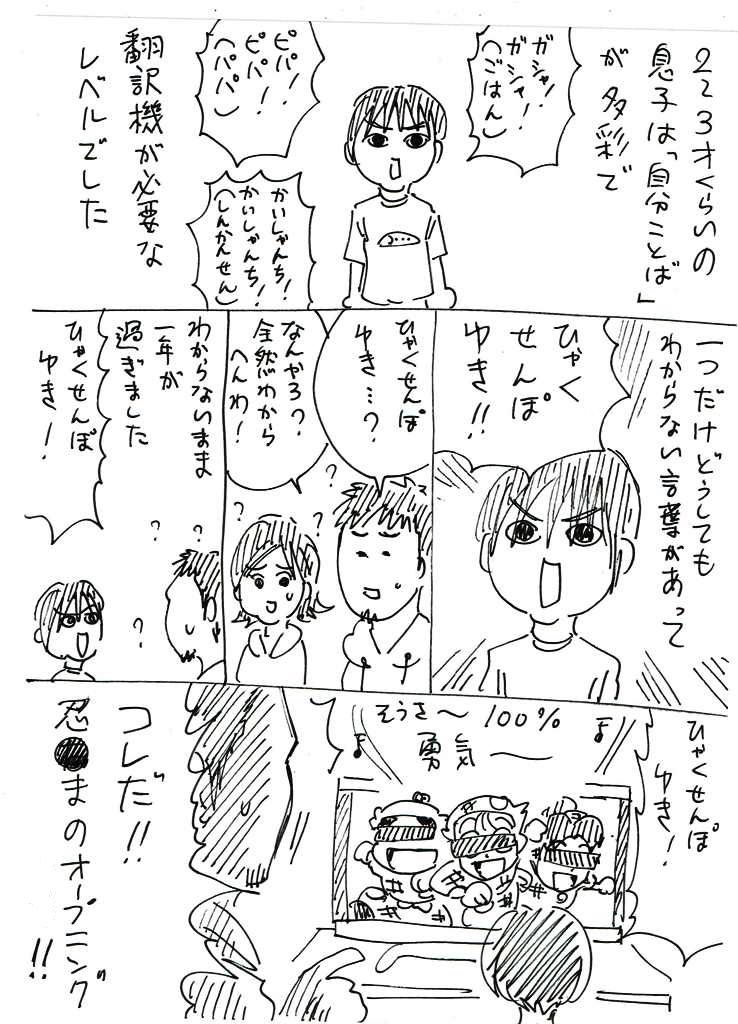 2〜3才くらいの
息子は「自分ことば」
が多彩で
ガシャ!
ガシャ!
(ごはん)
ピパ!
ピパ!
(パパ)
かいしゃんち!
かいしゃんち!
(しんかんせん)
翻訳機が必要な
レベルでした
一つだけどうしても
わからない言葉があって
ひゃく
せんぽ
ゆき!!
ひゃくせんぽ
ゆき…?
なんやろ?
全然わから
へんわ!
わからないまま
一年が
過ぎました
ひゃくせんぽ
ゆき!
ひゃくせんぽ
ゆき!
そうさ〜100%
勇気〜
コレだ!!
忍●まのオープニング
!!